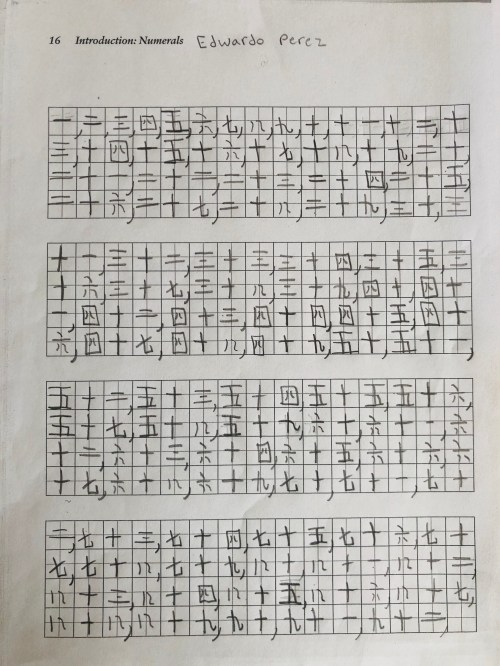 16 Introduction: Numerals Edwardo Perez
一,二,三,四,五,六,七,八,九,十,十一,十二,十
三,十四,十五,十六,十七,十八,十九,二十,
二十一,二十二,二十三,二十四,二十五,
二十六,二十七,二十八,二十九,三十,三
十一,三十二,三十三,三十四,三十五,三
十六,三十七,三十八,三十九,四十,四十
一,四十二,四十三,四十四,四十五,四十
六,四十七,四十八,四十九,五十,五十一,
五十二,五十三,五十四,五十五,五十六,
五十七,五十八,五十九,六十,六十一,六
十二,六十三,六十四,六十五,六十六,六
十七,六十八,六十九,七十,七十一,七十
二,七十三,七十四,七十五,七十六,七十
七,七十八,七十九,八十,八十一,八十二,
八十三,八十四,八十五,八十六,八十七,
八十八,八十九,九十,九十一,九十二,